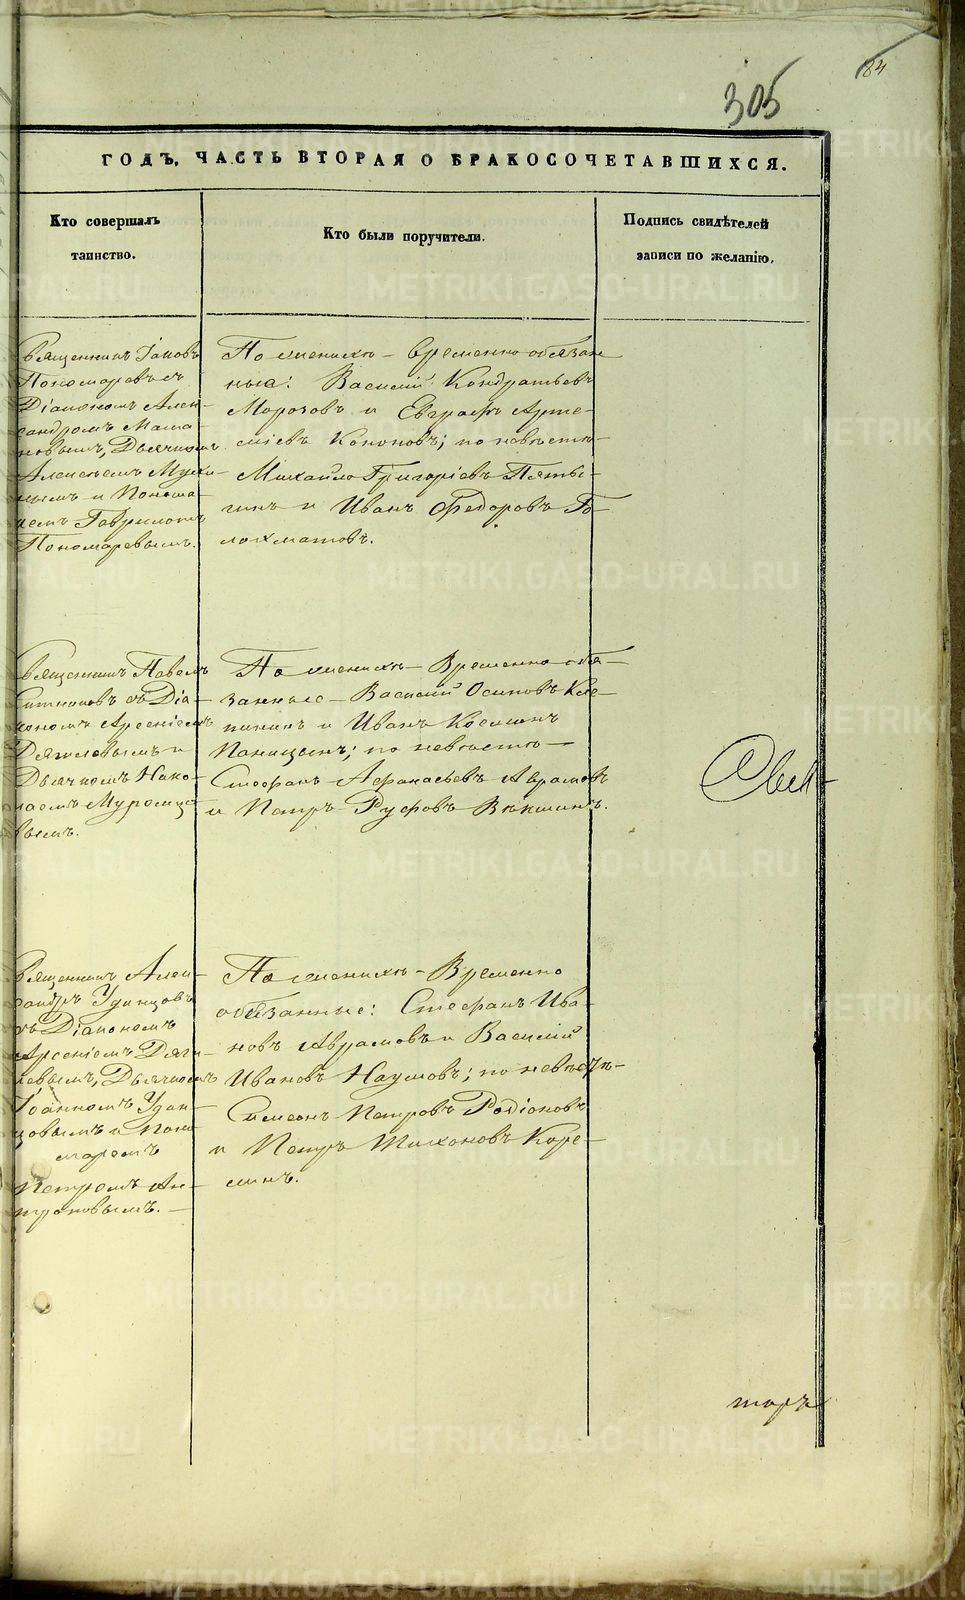 305
184
ГОДЪ, ЧАСТЬ ВТОРАЯ О БРАКОСОЧЕТАВШИХСЯ.
Кто совершалъ
таинство.
Кто были поручители.
Подпись свидѣтелей
записи по желанію.
Священникъ Іаковъ
Пономаревъ съ
Діакономъ Алек-
сандромъ Мама-
новымъ, Дьячкомъ
Алексѣемъ
нымъ и Понома-
ремъ Гавриломъ
Пономаревымъ.
По женихѣ – временно обязан-
ные: Василій Кондратьевъ
Морозовъ и Евграфъ Арте-
міевъ Кононовъ; по невѣстѣ
Михайло Григорьевъ
и Иванъ Федоровъ Го-
лохматовъ.
Священникъ Павелъ
съ Діа-
кономъ Арсеніемъ
Дягилевымъ и
Дьячкомъ Нико-
лаемъ Муромце-
вымъ.
По женихѣ – Временно обя-
занные – Василій Осиповъ
и Иванъ Косминъ
по невѣстѣ –
Стефанъ Афанасьевъ Аврамовъ
и Петръ Руфовъ Векшинъ.
Священникъ Алек-
сандръ Удинцовъ
съ Діакономъ
Арсеніемъ Дяги-
левымъ, Дьячкомъ
Іоанномъ Удин-
цовымъ и Поно-
маремъ
Петромъ Ан-
троповымъ. –
По женихѣ – Временно
обязанные: Стефанъ Ива-
новъ Аврамовъ и Василій
Ивановъ Наумовъ; по невѣстѣ –
Симеонъ Петровъ Родіоновъ
и Петръ Тихоновъ Коре-
линъ.